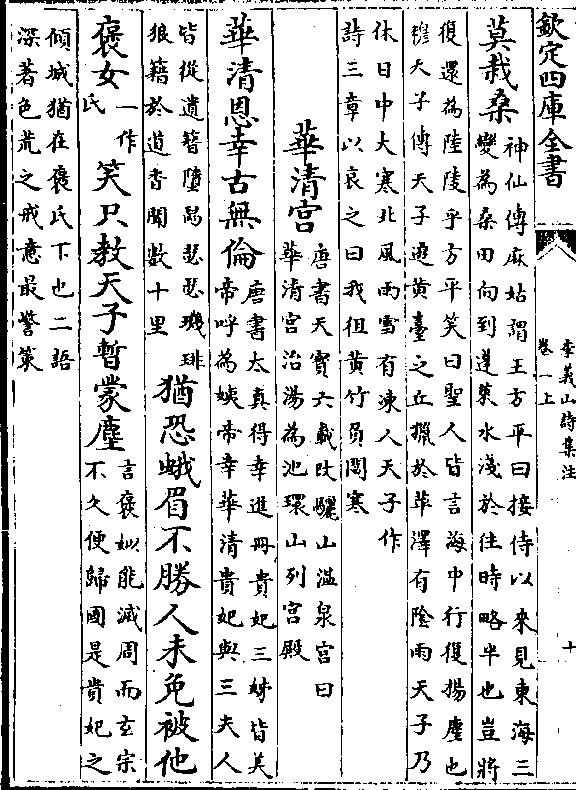 欽定四庫全書
李義山詩集注
卷一上
十
莫栽桑
神仙傳麻姑謂王方平曰接侍以來見東海三
變為桑田向到蓬萊水淺於往時略半也豈將
復還為陸陵乎方平笑曰聖人皆言海中行復揚塵也
穆天子傳天子遊黃臺之丘獵於苹澤有陰雨天子乃
休日中大寒北風雨雪有凍人天子作
詩三章以哀之曰我徂黃竹員閟寒
華清宮
唐書天寶六載改驪山温泉宮曰
華清宮治湯為池環山列宮殿
華清恩幸古無倫
唐書太真得幸進冊貴妃三姊皆美
帝呼為姨帝幸華清貴妃與三夫人
皆從遺簪墮舄瑟瑟璣琲
狼籍於道香聞數十里
猶恐蛾眉不勝人未免被他
褒女
一作
氏
笑只教天子暫蒙塵
言褒姒能滅周而玄宗
不久便歸國是貴妃之
傾城猶在褒氏下也二語
深著色荒之戒意最警策